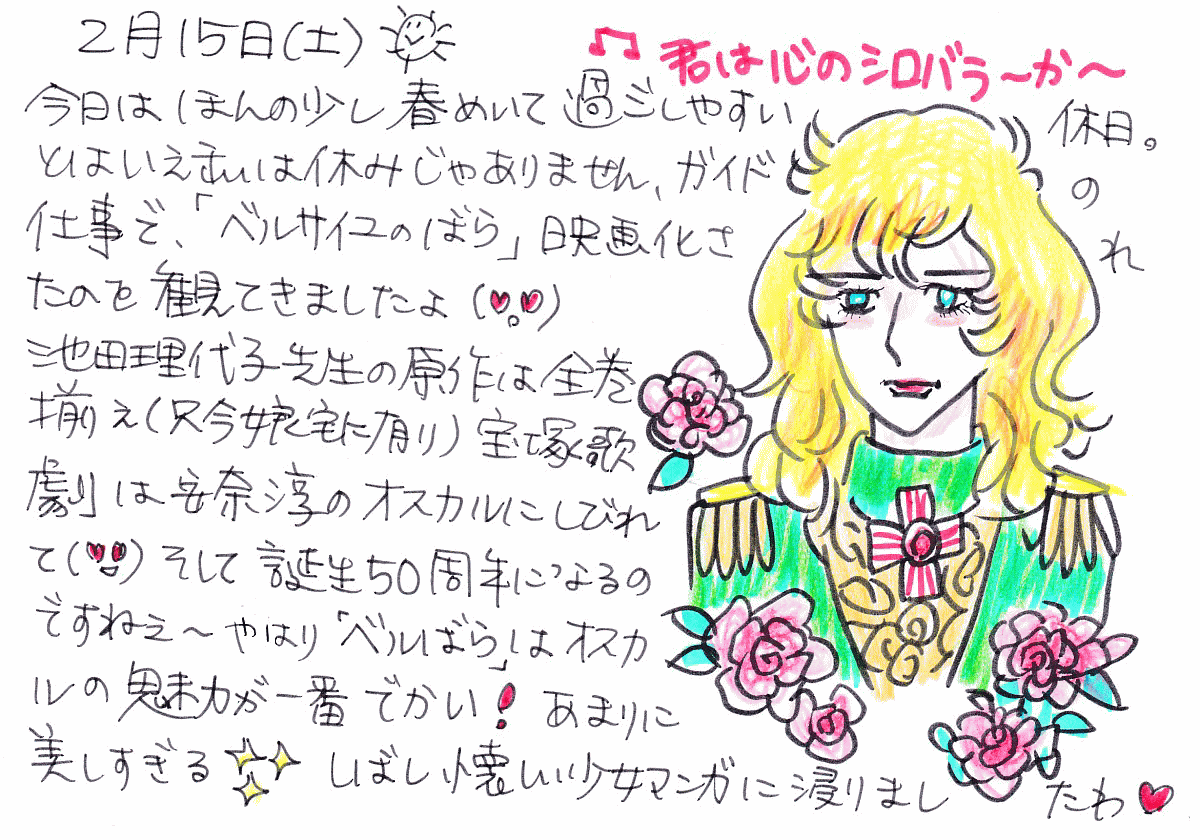 2月15日(土)
♫ 君は心のシロバラ〜か〜
今日はほんの少し春めいて過ごしやすい休日。
とはいえ私は休みじゃありません、ガイドの
仕事で、「ベルサイユのばら」映画化され
たのを観てきましたよ(♥♥)
池田理代子先生の原作は全巻
揃え(只今娘宅に有り)宝塚歌
劇」は安奈淳のオスカルにしびれ
て(♥♥)そして誕生50周年になるの
ですねぇ〜やはり「ベルばら」はオスカ
ルの魅力が一番でかい!あまりに
美しすぎる しばし懐しい少女マンガに浸りましたわ♥